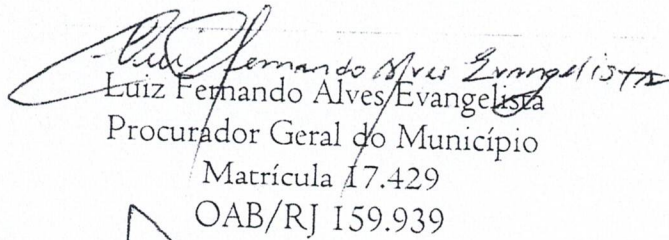 Luiz Fernando Alves Evangelista
Luiz Fernando Alves Evangelista
Procurador Geral do Município
Matrícula 17.429
OAB/RJ 159.939